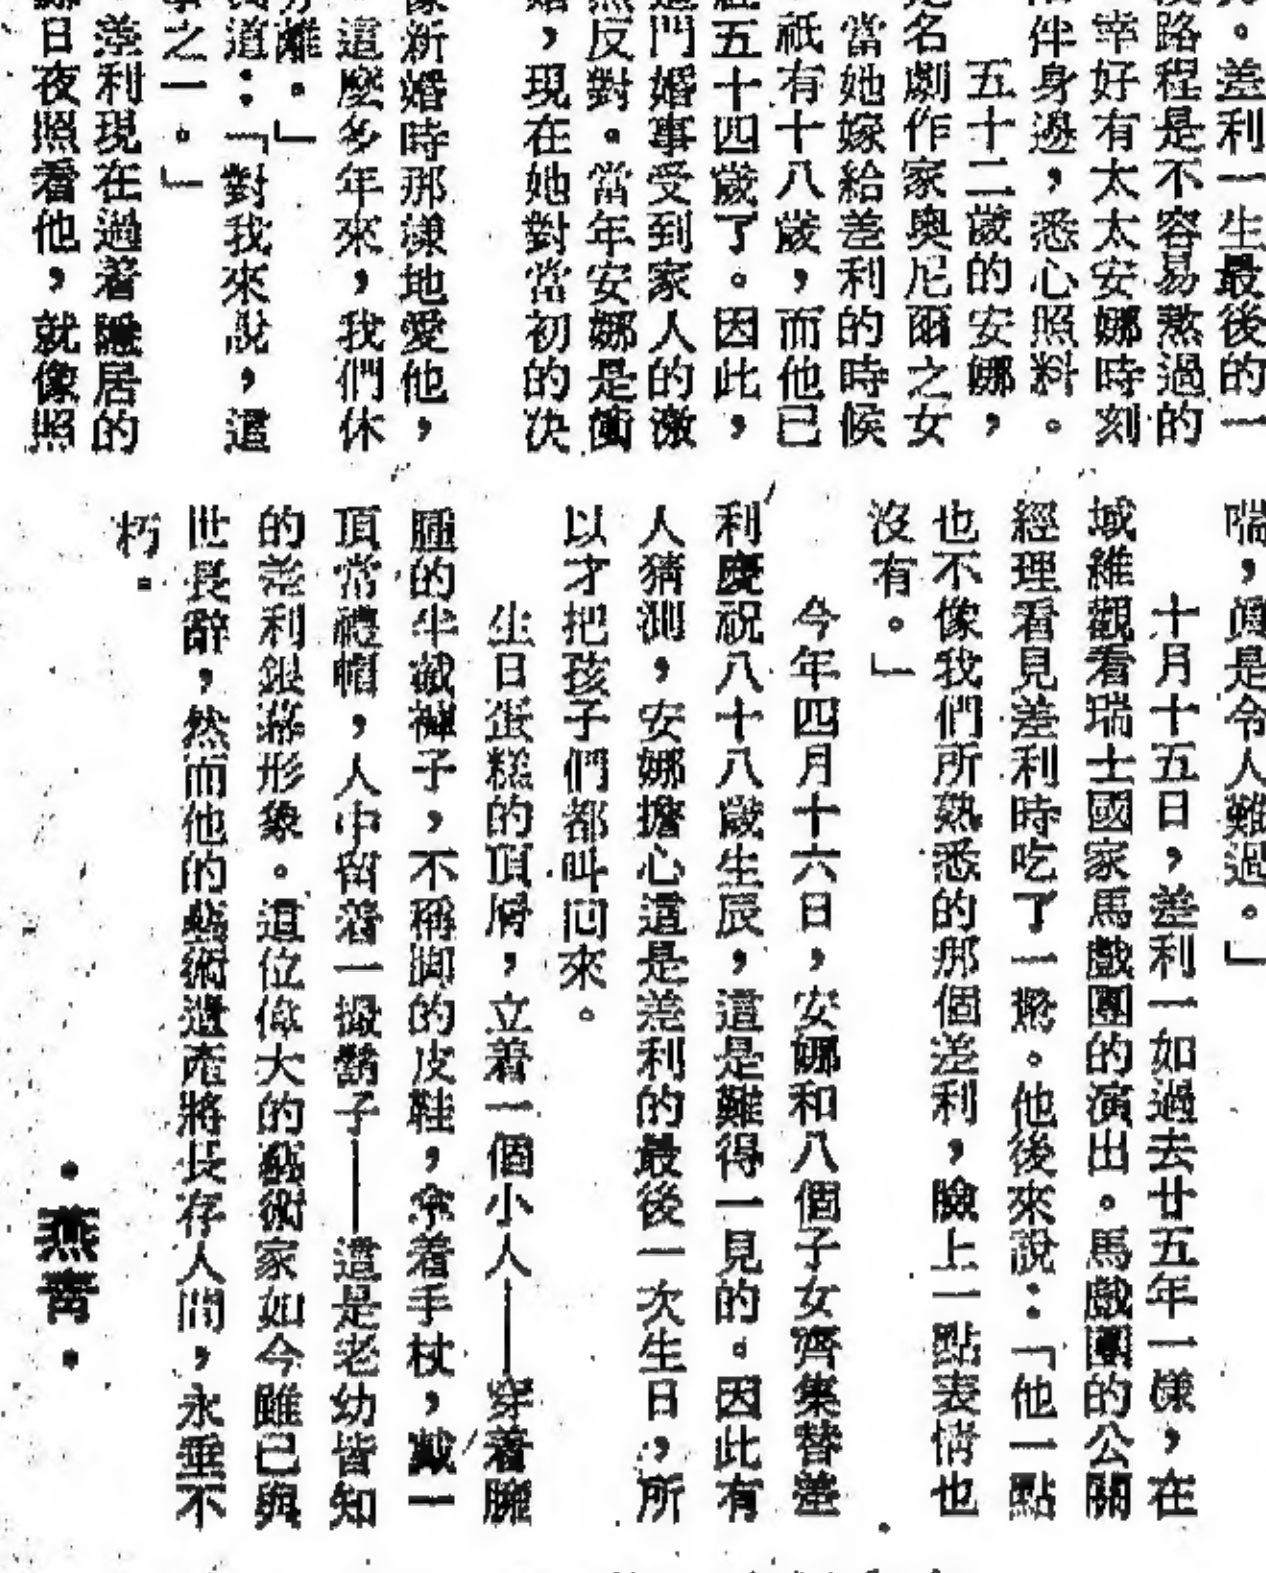 。差利一生最後的一
路程是不容易熬過的
幸好有太太安娜時刻
伴身邊，悉心照料。
五十二歲的安娜，
名劇作家奧尼爾之女
當她嫁給差利的時候
祇有十八歲，而他已
五十四歲了。因此，
門婚事受到家人的激
反對。當年安娜是衝
，現在她對當初的決
新婚時那樣地愛他，
這麼多年來，我們休
離。」
道：「對我來說，這
之一。」
差利現在過着隱居的
日夜照看他，就像照
喘，眞是令人難過。」
十月十五日，差利一如過去廿五年一樣，在
域維觀看瑞士國家馬戲團的演出。馬戲團的公關
經理看見差利時吃了一驚。他後來說：「他一點
也不像我們所熟悉的那個差利，臉上一點表情也
沒有。」
今年四月十六日，安娜和八個子女齊集替差
利慶祝八十八歲生辰，這是難得一見的。因此有
人猜測，安娜擔心這是差利的最後一次生日，所
以才把孩子們都叫回來。
生日蛋糕的頂層，立着一個小人——穿着臃
腫的半截褲子，不稱脚的皮鞋，拿着手杖，戴一
頂常禮帽，人中留着一撮鬍子——這是老幼皆知
的差利銀幕形象。這位偉大的藝術家如今雖已與
世長辭，然而他的藝術遺產將長存人間，永垂不
朽。
·燕青·